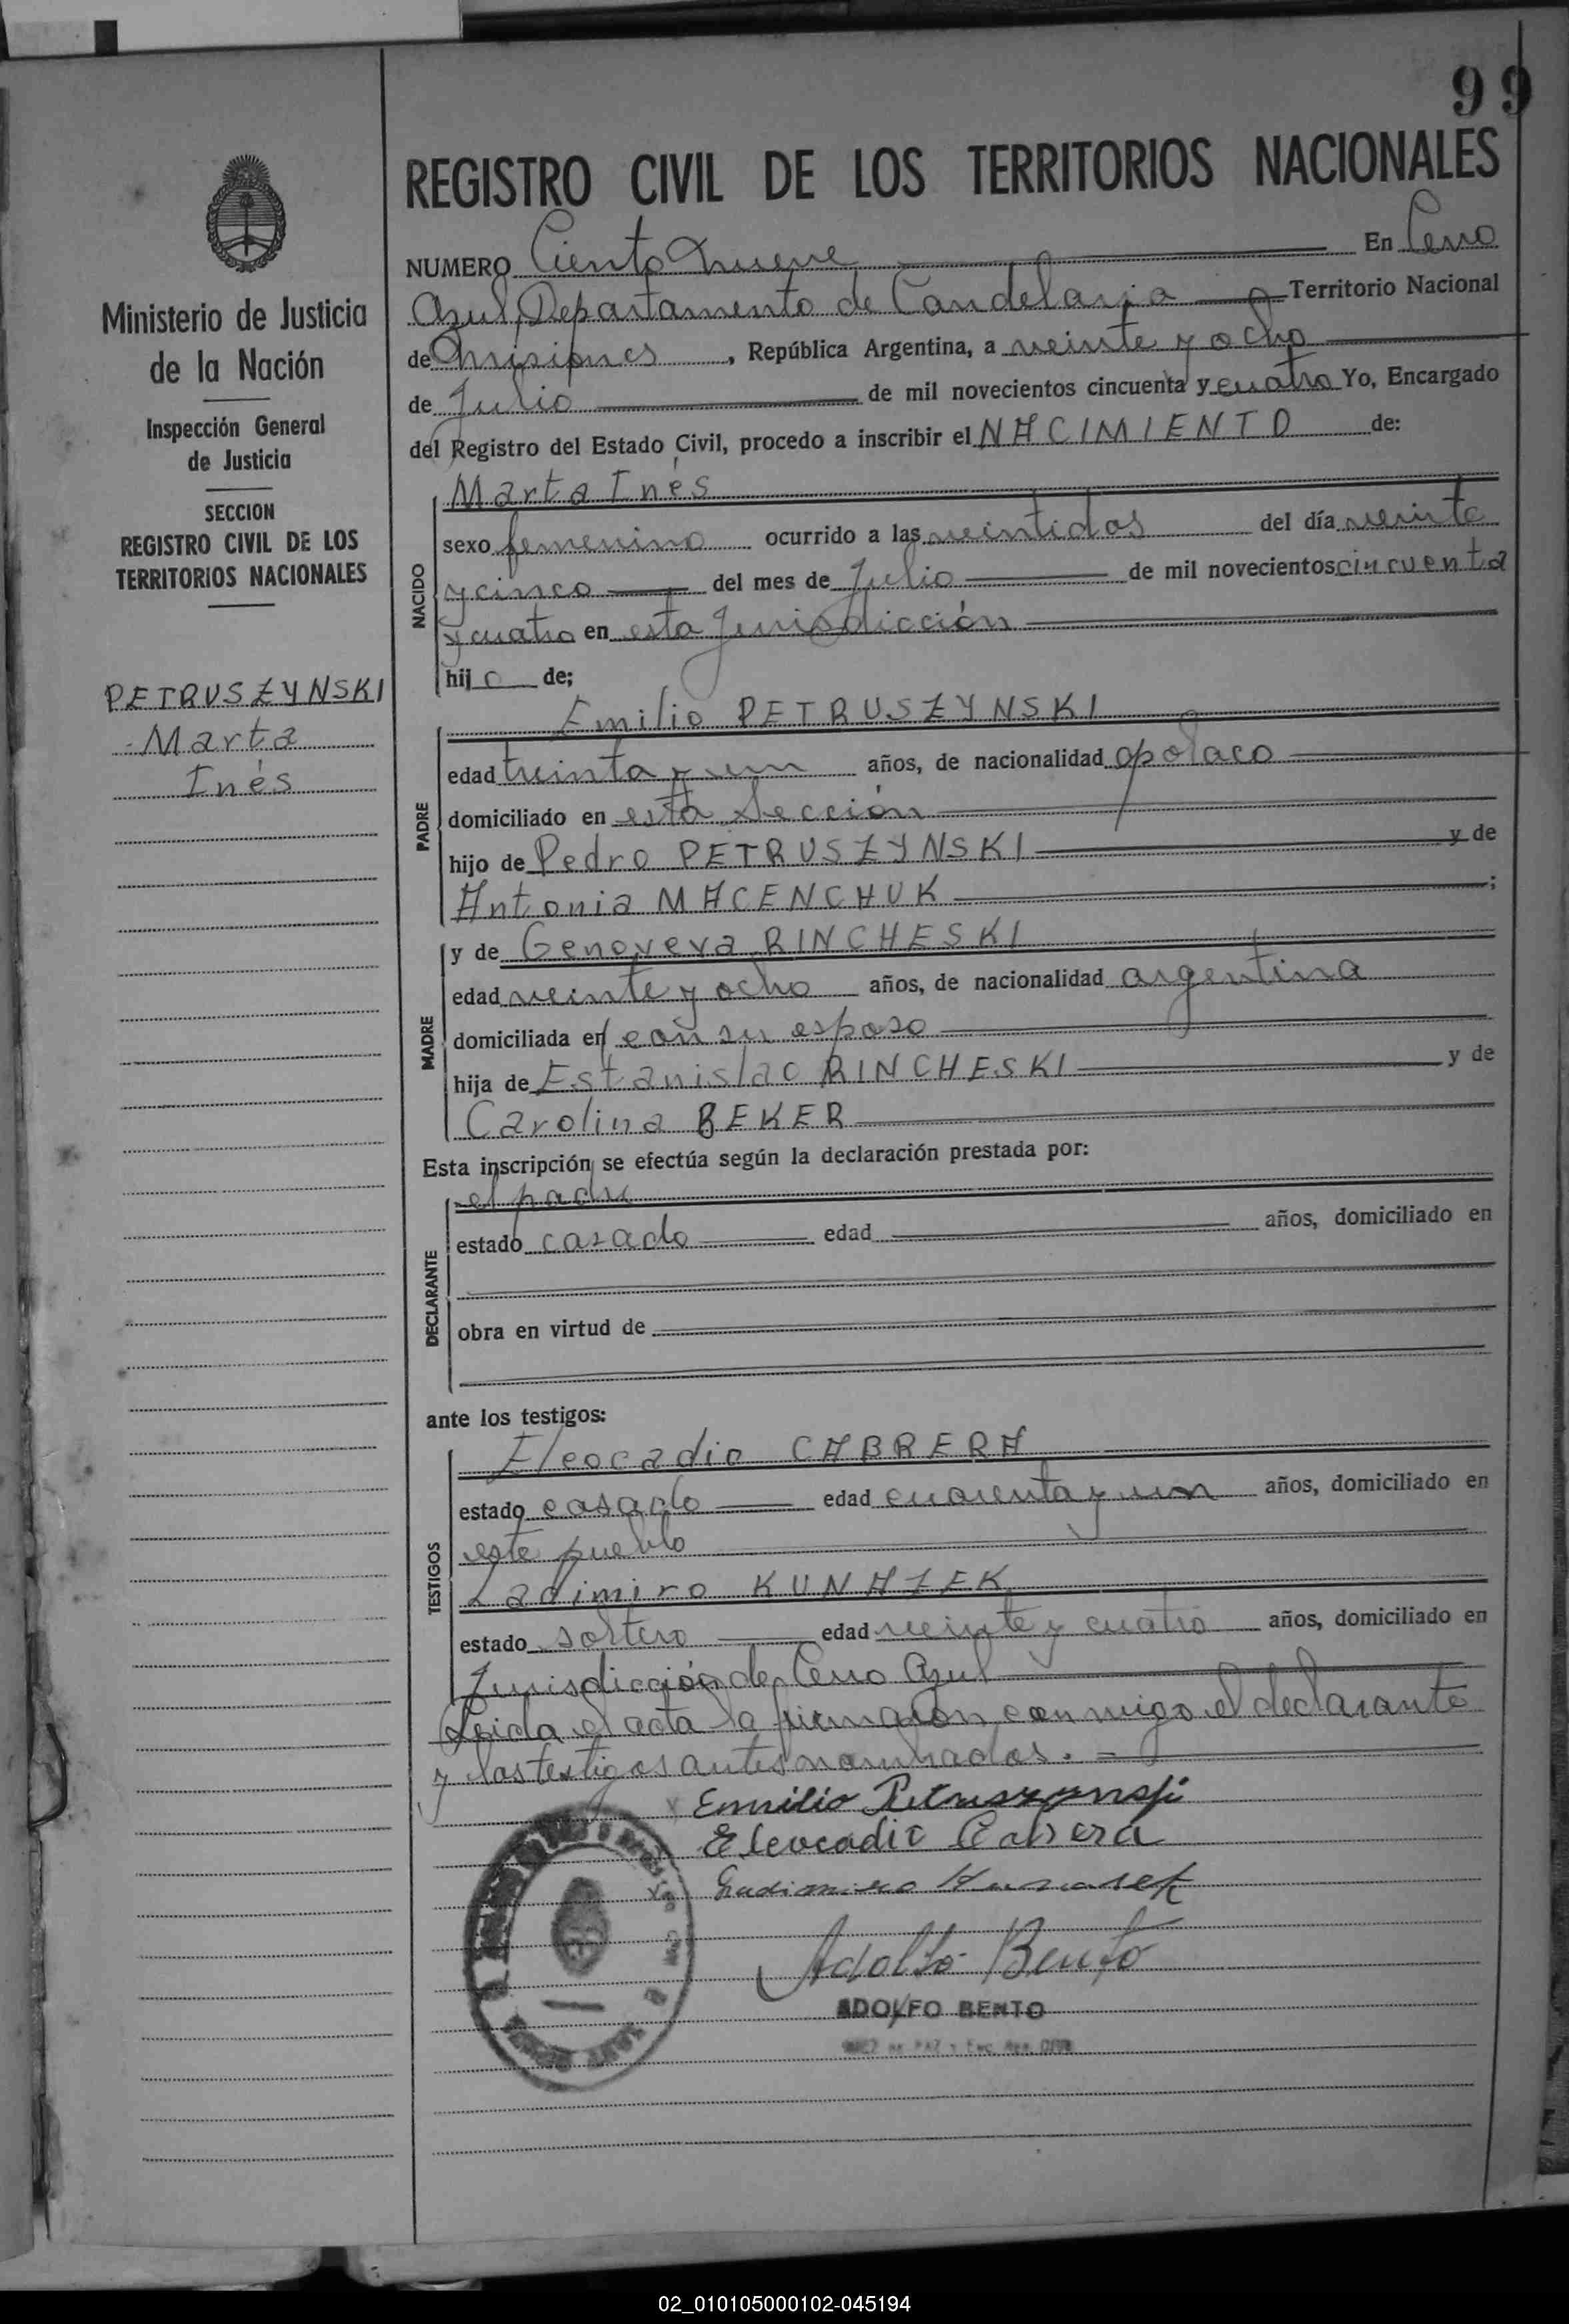 99
REGISTRO CIVIL DE LOS TERRITORIOS NACIONALES
Ministerio de Justicia
de la Nación
Inspección General
de Justicia
SECCION
REGISTRO CIVIL DE LOS
TERRITORIOS NACIONALES
PETRUSZYNSKI
Marta
Inés
NUMERO Ciento nueve En Cerro
Azul, Departamento de Candelaria Territorio Nacional
de Misiones, República Argentina, a veinte y ocho
de Julio de mil novecientos cincuenta y cuatro Yo, Encargado
del Registro del Estado Civil, procedo a inscribir el NACIMIENTO de:
Marta Inés
NACIDO
sexo femenino ocurrido a las veintidos del día veinte
y cinco del mes de Julio de mil novecientos cincuenta
y cuatro en esta Jurisdicción
hija de;
Emilio PETRUSZYNSKI
PADRE
edad treinta y un años, de nacionalidad polaco
domiciliado en esta Sección
hijo de Pedro PETRUSZYNSKI y de
Antonia MACENCHUK ;
MADRE
y de Genoveva RINCHESKI
edad veinte y ocho años, de nacionalidad argentina
domiciliada en con su esposo
hija de Estanislao RINCHESKI y de
Carolina BEKER
Esta inscripción se efectúa según la declaración prestada por:
DECLARANTE
el padre
estado casado edad años, domiciliado en
obra en virtud de
ante los testigos:
TESTIGOS
Eleocadio CABRERA
estado casado edad cuarenta y un años, domiciliado en
este pueblo
Ladimiro KUNAZEK
estado soltero edad veinte y cuatro años, domiciliado en
Jurisdicción de Cerro Azul
Leida el acta la firmaron conmigo el declarante
y los testigos antes nombrados. =
Emilio Petruszynski
Eleocadio Cabrera
Ladimiro Kunasek
Adolfo Bento
ADOLFO BENTO
JUEZ DE PAZ y Enc. Reg. Civil
02_010105000102-045194